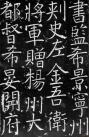 書監希景寧州
刺史左金吾衛
將軍贈楊州大
都督希晏開府